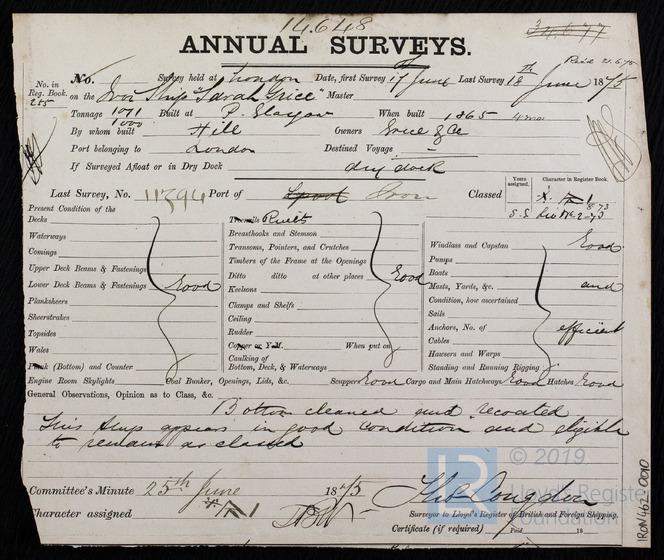 14648
34677
ANNUAL SURVEYS.
Paid 21.6.75
No. in Reg. Book. 255
No. Survey held at London Date, first Survey 17th June Last Survey 18th June 1875
on the Iron Ship "Sarah Grice" Master
Tonnage 1071 1000 Built at P. Glasgow When built 1865 4 mo
By whom built Hill Owners Grice & Co
Port belonging to London Destined Voyage —
If Surveyed Afloat or in Dry Dock dry dock
Last Survey, No. 11394 Port of Lpool Iron Classed
Years assigned. Character in Register Book.
A 1
8 73
S.S. Liv No. 2-73
Present Condition of the
Decks
Waterways
Comings
Upper Deck Beams & Fastenings
Lower Deck Beams & Fastenings Good
Planksheers
Sheerstrakes
Topsides
Wales
Plank (Bottom) and Counter
Engine Room Skylights Coal Bunker, Openings, Lids, &c. Scuppers Good Cargo and Main Hatchways Good Hatches Good
Treenails Rivets
Breasthooks and Stemson
Transoms, Pointers, and Crutches
Timbers of the Frame at the Openings
Ditto ditto at other places Good
Keelsons
Clamps and Shelfs
Ceiling
Rudder
Copper or Y.M. When put on
Caulking of Bottom, Deck, & Waterways
Windlass and Capstan Good
Pumps
Boats
Masts, Yards, &c. and
Condition, how ascertained
Sails
Anchors, No. of efficient
Cables
Hawsers and Warps
Standing and Running Rigging
General Observations, Opinion as to Class, &c.
Bottom cleaned and recoated
This Ship appears in good condition and eligible
to remain as classed
Committee's Minute 25th June 1875
Character assigned A 1
Thos Congdon
Surveyor to Lloyd's Register of British and Foreign Shipping.
Certificate (if required) Paid 18
© 2019
LR
Lloyd's Register
Foundation
IRON462-0010